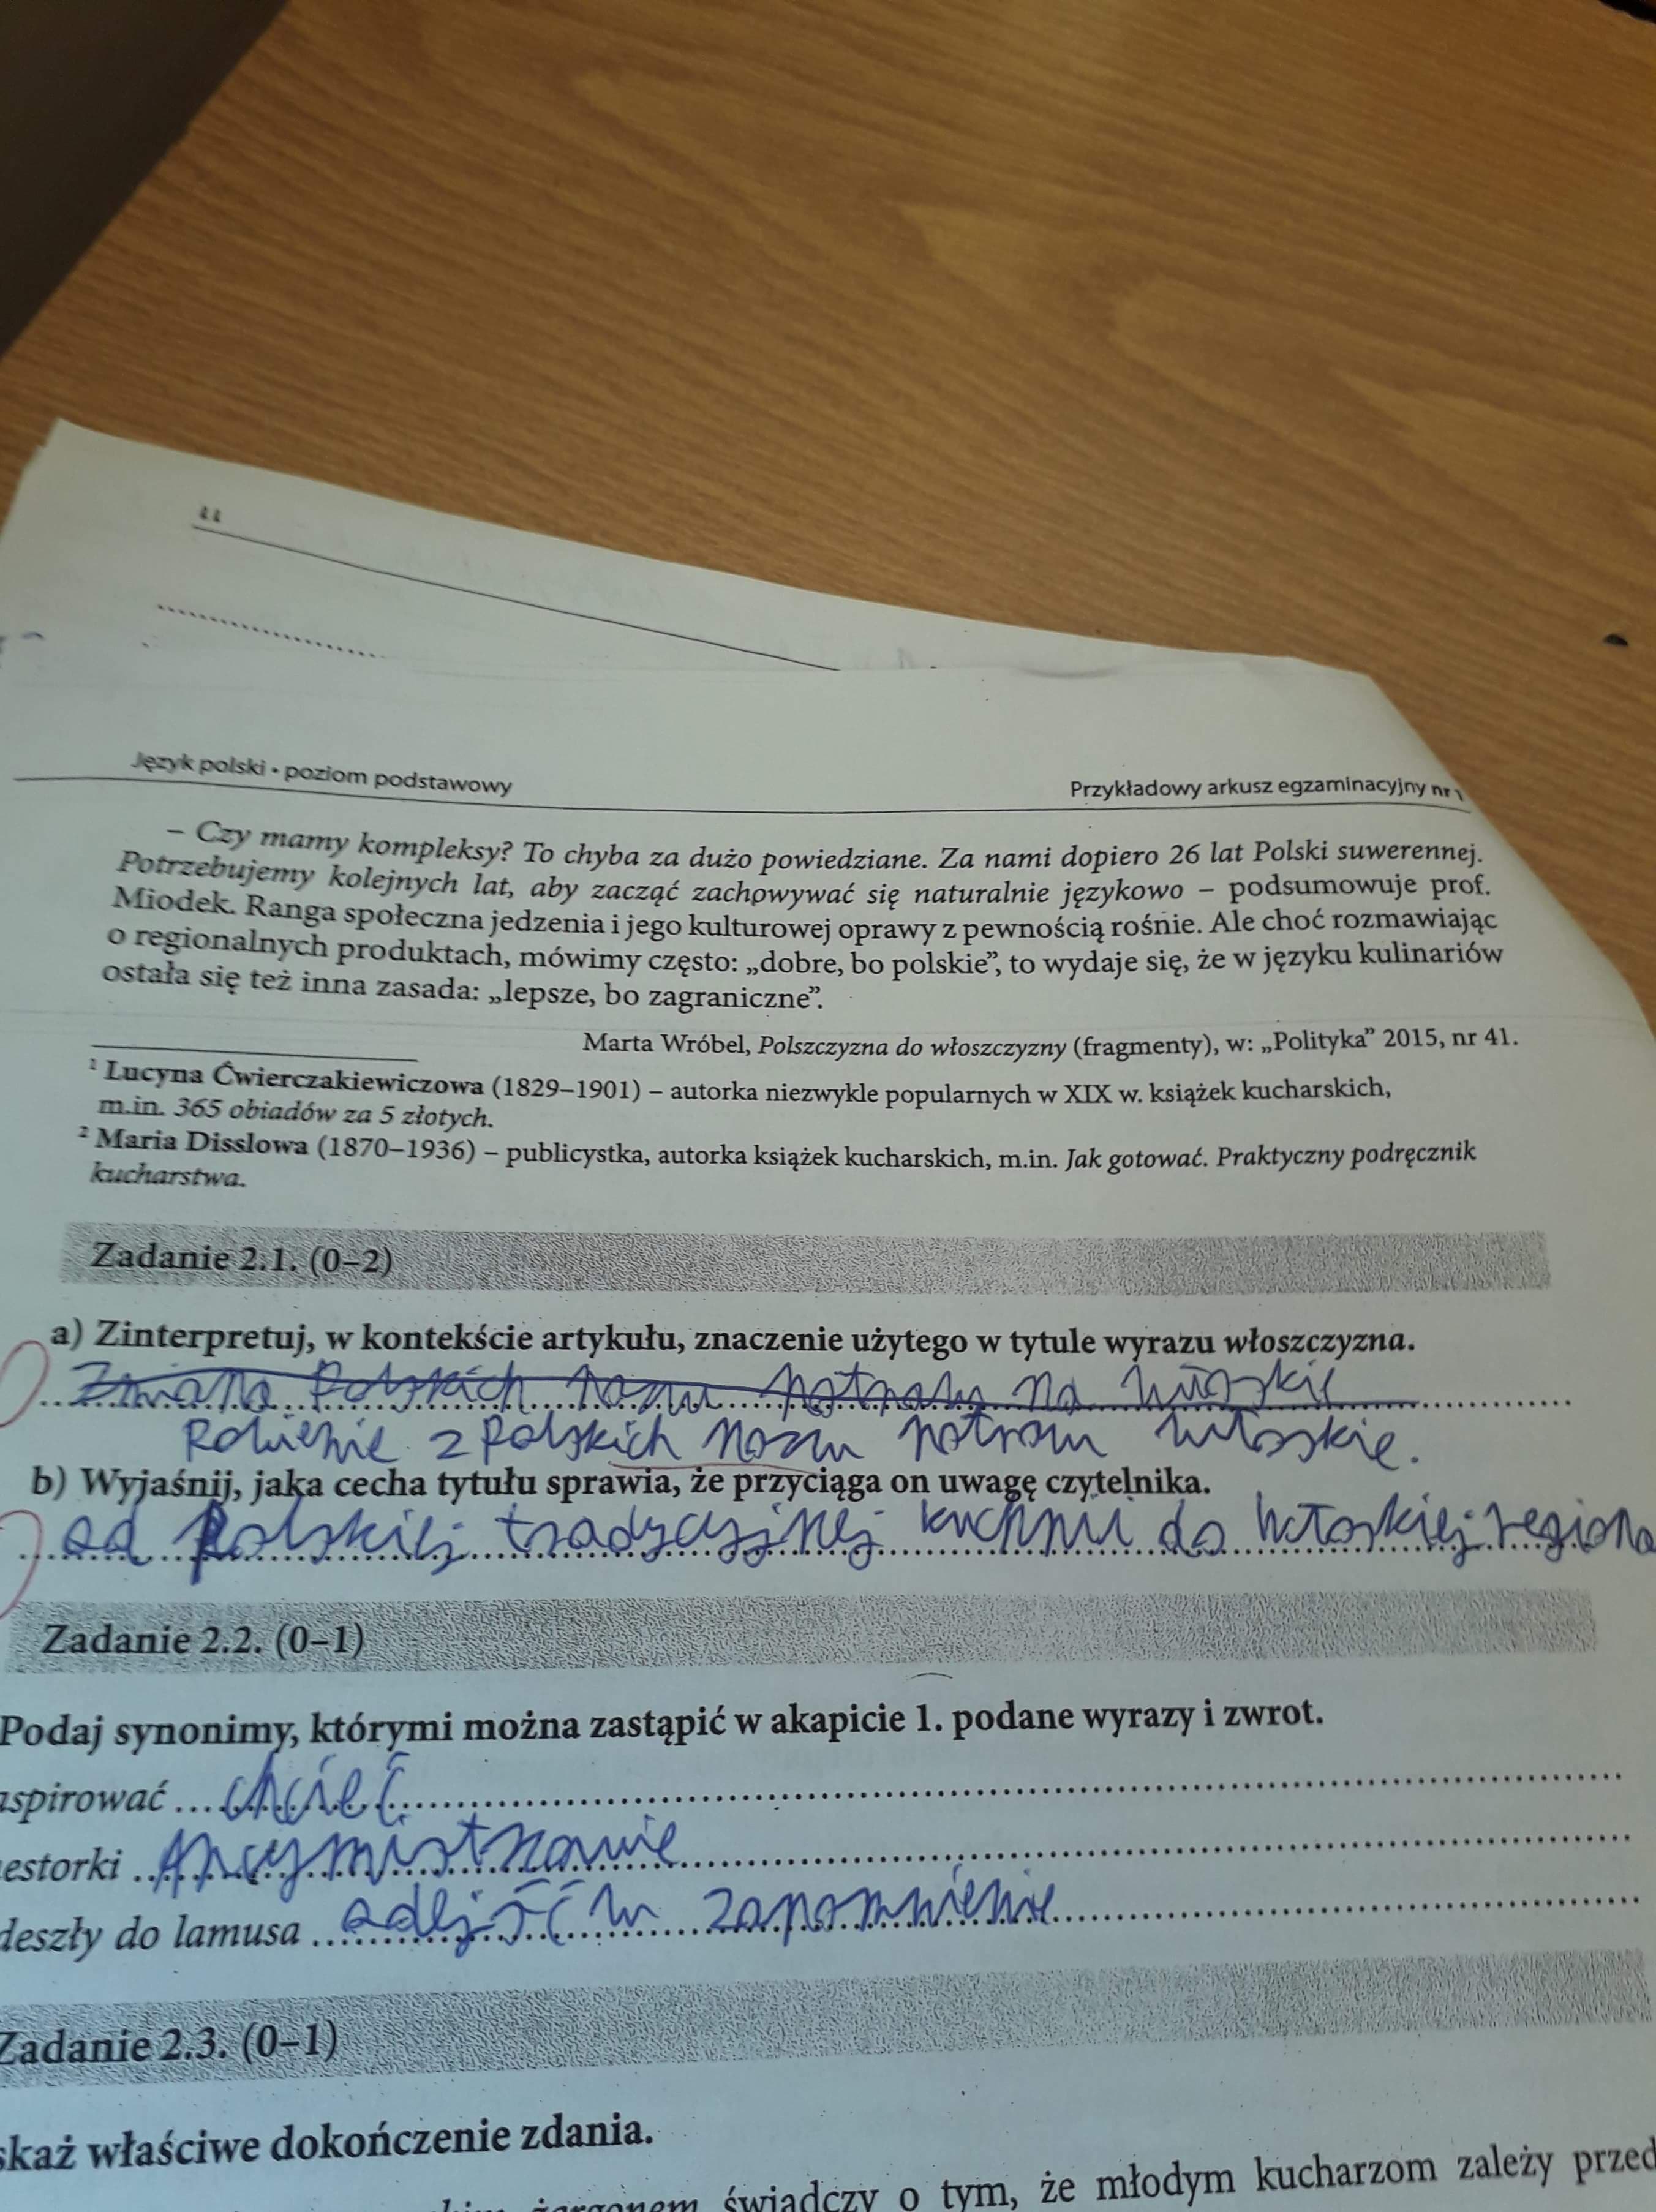 Język polski • poziom podstawowy
Przykładowy arkusz egzaminacyjny nr
– Czy mamy kompleksy? To chyba za dużo powiedziane. Za nami dopiero 26 lat Polski suwerennej.
Potrzebujemy kolejnych lat, aby zacząć zachowywać się naturalnie językowo – podsumowuje prof.
Miodek. Ranga społeczna jedzenia i jego kulturowej oprawy z pewnością rośnie. Ale choć rozmawiając
o regionalnych produktach, mówimy często: „dobre, bo polskie”, to wydaje się, że w języku kulinariów
ostała się też inna zasada: „lepsze, bo zagraniczne”.
Marta Wróbel, Polszczyzna do włoszczyzny (fragmenty), w: „Polityka” 2015, nr 41.
¹ Lucyna Ćwierczakiewiczowa (1829–1901) – autorka niezwykle popularnych w XIX w. książek kucharskich,
m.in. 365 obiadów za 5 złotych.
² Maria Disslowa (1870–1936) – publicystka, autorka książek kucharskich, m.in. Jak gotować. Praktyczny podręcznik
kucharstwa.
Zadanie 2.1. (0–2)
a) Zinterpretuj, w kontekście artykułu, znaczenie użytego w tytule wyrazu włoszczyzna.
Zmiana Polskich nazw potraw na włoskie
Robienie z Polskich nazw potraw włoskie.
b) Wyjaśnij, jaka cecha tytułu sprawia, że przyciąga on uwagę czytelnika.
od Polskiej tradycyjnej kuchni do włoskiej regiona
Zadanie 2.2. (0–1)
Podaj synonimy, którymi można zastąpić w akapicie 1. podane wyrazy i zwrot.
aspirować chcieć
estorki
deszły do lamusa odejść w zapomnienie
Zadanie 2.3. (0–1)
skaż właściwe dokończenie zdania.
żargonem świadczy o tym, że młodym kucharzom zależy przed